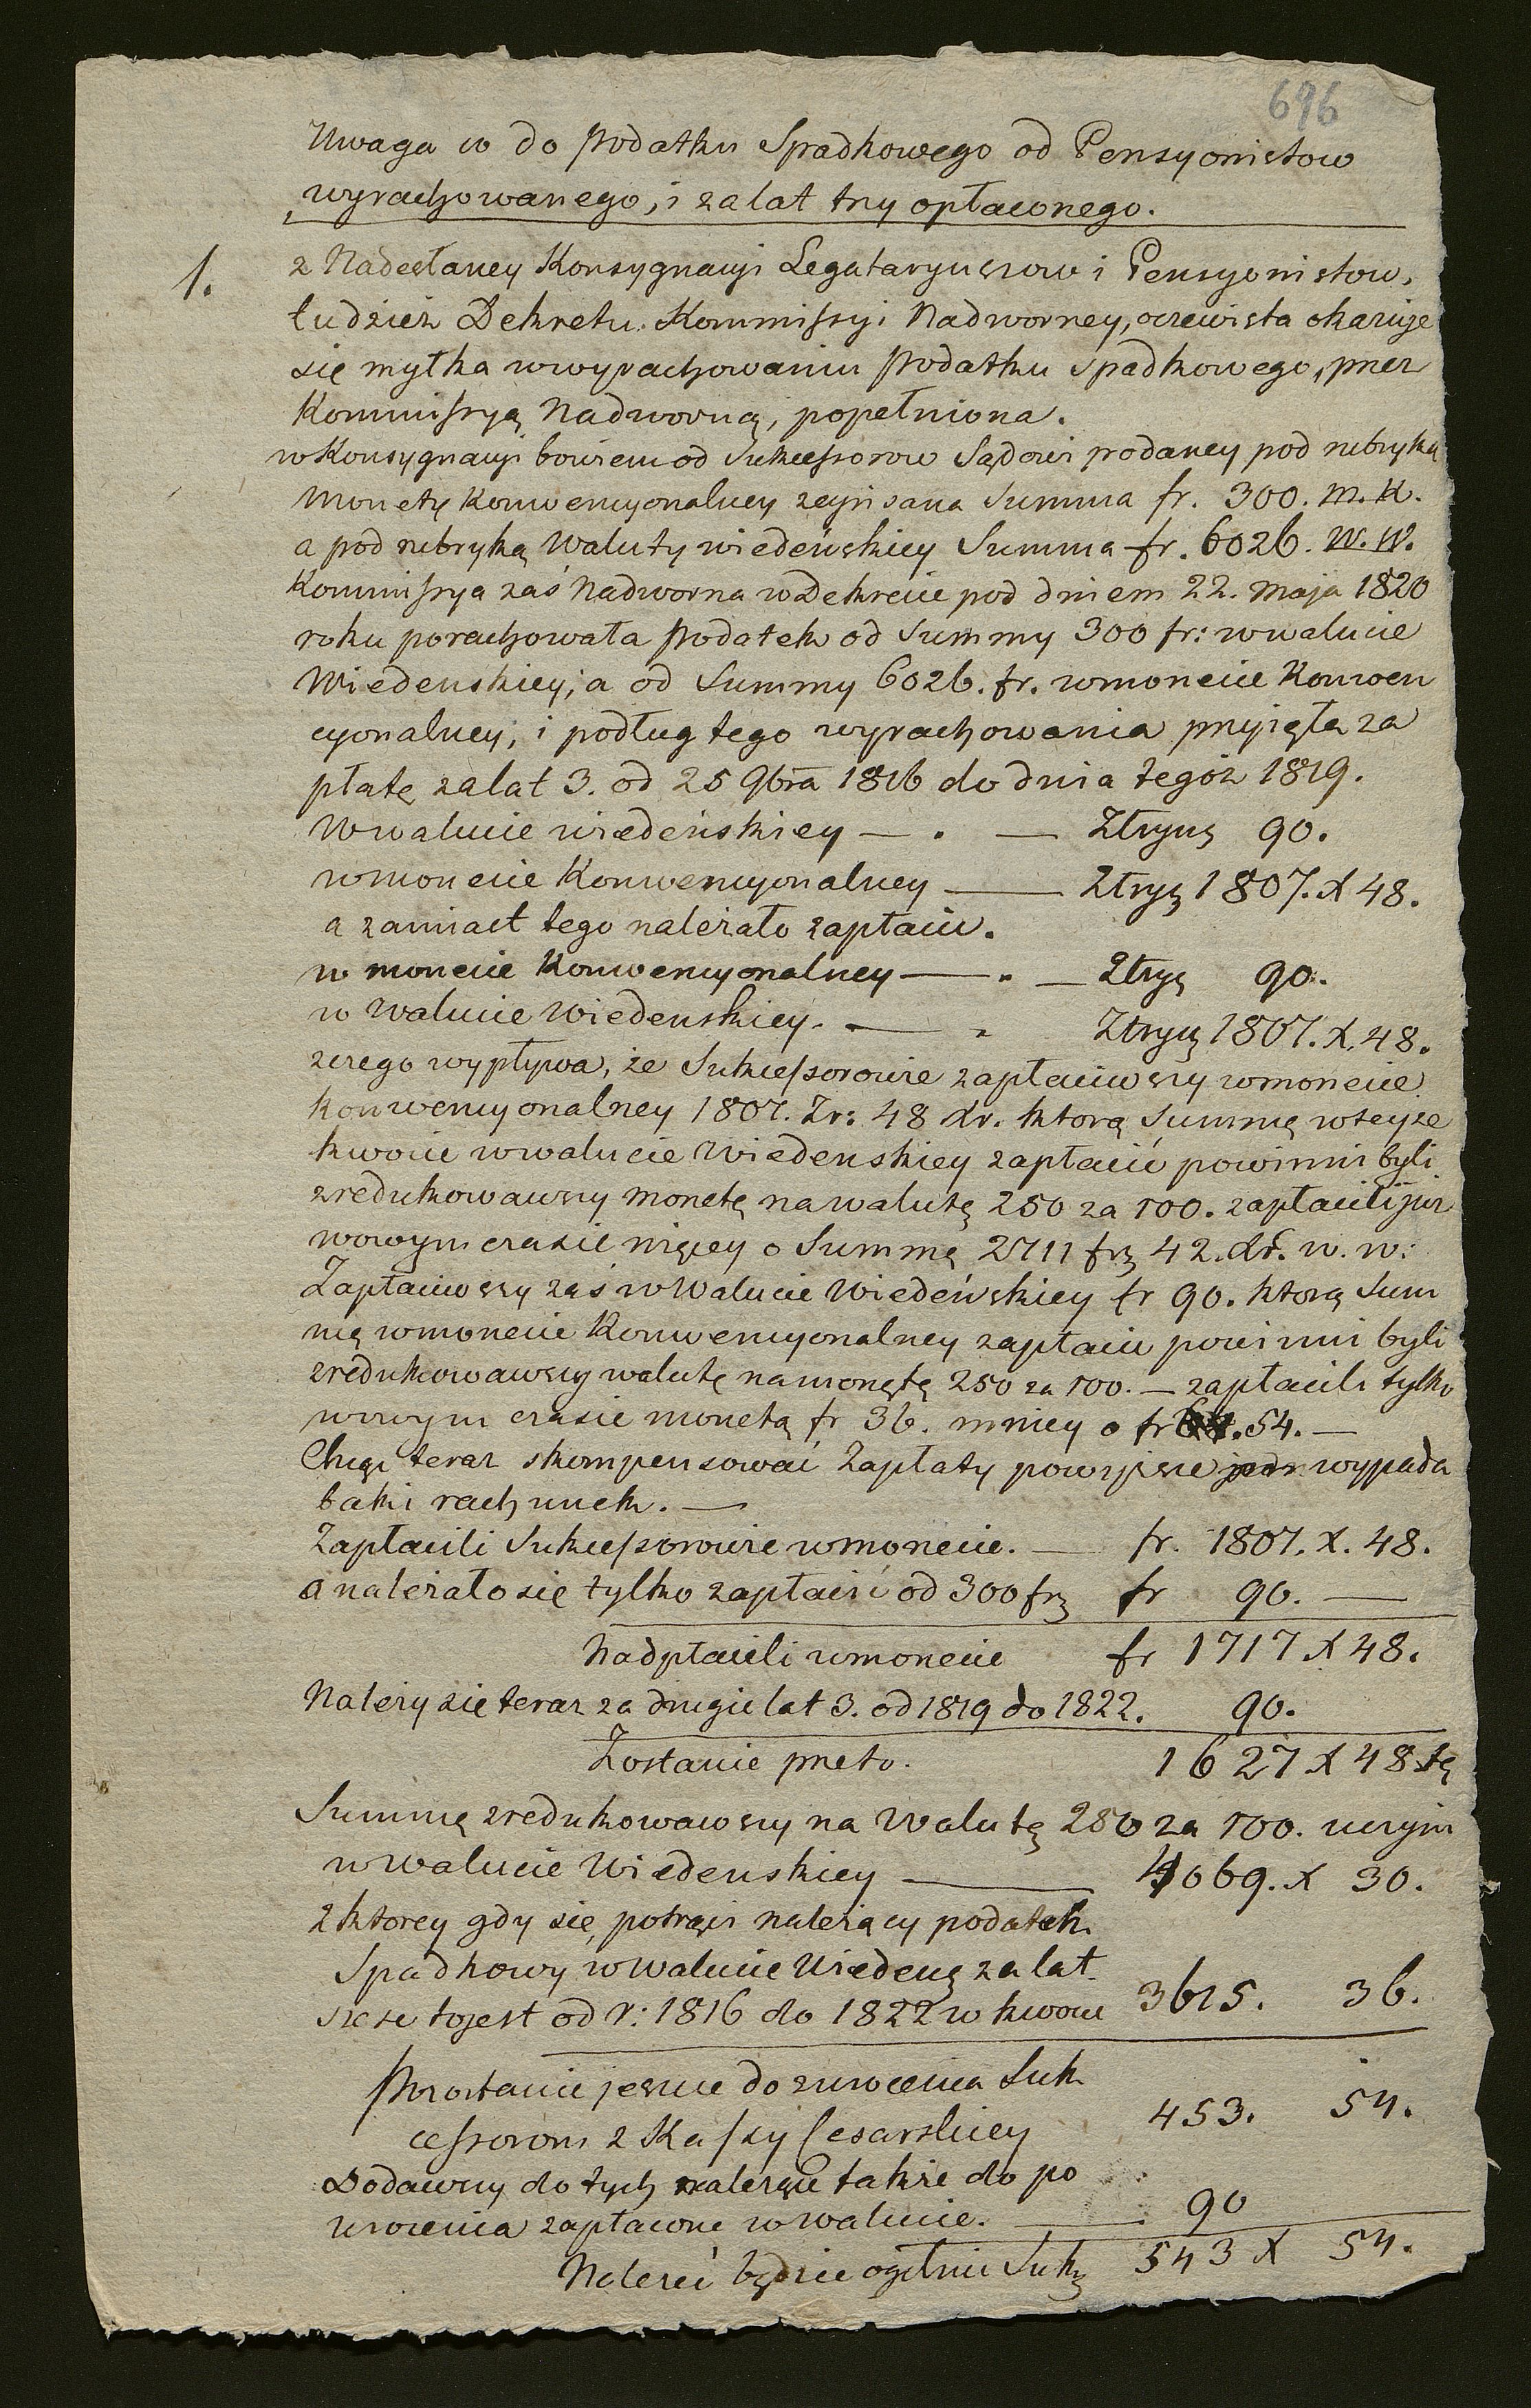 696
Uwaga co do Podatku Spadkowego od Pensyonistow
wyrachowanego, i za lat try opłaconego.
1. z Nadesłaney Konsygnacyi Legataryuszow i Pensyonistow,
tudzież Dekretu Kommissyi Nadworney, oczewista okazuje
się myłka w wyrachowaniu Podatku Spadkowego, przez
Kommissyą Nadworną, popełniona.
w Konsygnacyi bowiem od Sukcessorow Sądowi podaney pod rubryką
Monety Konwencyonalney zapisana Summa fr. 300. M. K.
a pod rubryką Waluty wiedeńskiey Summa fr. 6026. W. W.
Kommissya zaś Nadworna w Dekrecie pod dniem 22. Maja 1820
roku porachowała Podatek od Summy 300 fr: w walucie
Wiedenskiey, a od Summy 6026. fr. w monecie Konwen
cyonalney, i podług tego wyrachowania przyięła za
płatę za lat 3. od 25 9bra 1816 do dnia tegoż 1819.
W walucie wiedeńskiey — . — Złryng 90.
w monecie Konwencyonalney — Złryg 1807. X 48.
a zamiast tego należało zapłacic.
w monecie Konwencyonalney — . — Złryg 90.
w Walucie Wiedenskiey. — " Złryng 1807. X. 48.
z czego wypływa, że Sukcessorowie zapłaciwszy w monecie
Konwencyonalney 1807. Zr: 48 Xr. ktorą Summę w teyże
kwocie w walucie Wiedenskiey zapłacić powinni byli
zredukowawszy monetę na walutę 250 za 100. zapłacili już
w owym czasie więcey o Summę 2711 frg 42. Xr. w. w:
Zapłaciwszy zaś w Walucie Wiedeńskiey fr 90. ktorą Sum
mę w monecie Konwencyonalney zapłacic powinni byli
zredukowawszy walutę na monętę 250 za 100. — zapłacili tylko
w owym czasie monetą fr 36. mniey o fr 54. —
Chcąc teraz skompensować Zapłaty powyższe wypada
taki rachunek. —
Zapłacili Sukcessorowie w monecie. — fr. 1807. X. 48.
a należało się tylko zapłacić od 300 frg fr 90. —
Nadpłacili w monecie fr 1717 X 48.
Należy się teraz za drugie lat 3. od 1819 do 1822. 90.
Zostanie przeto. 1627 X 48 tę
Summę zredukowawszy na Walutę 250 za 100. uczyni
w walucie Wiedenskiey — 4069. X 30.
z ktorey gdy się potrąci należący podatek
Spadkowy w Walucie Wiedeng za lat
sześć to jest od r: 1816 do 1822 w kwocie 3615. 36.
Pozostanie jeszcze do zwrocenia Suk
cessorom z Kassy Cesarskiey 453. 54.
Dodawszy do tych należące także do po
wrocenia zapłacone w walucie. — 90
Należeć będzie ogółnie Sukg 543 X 54.